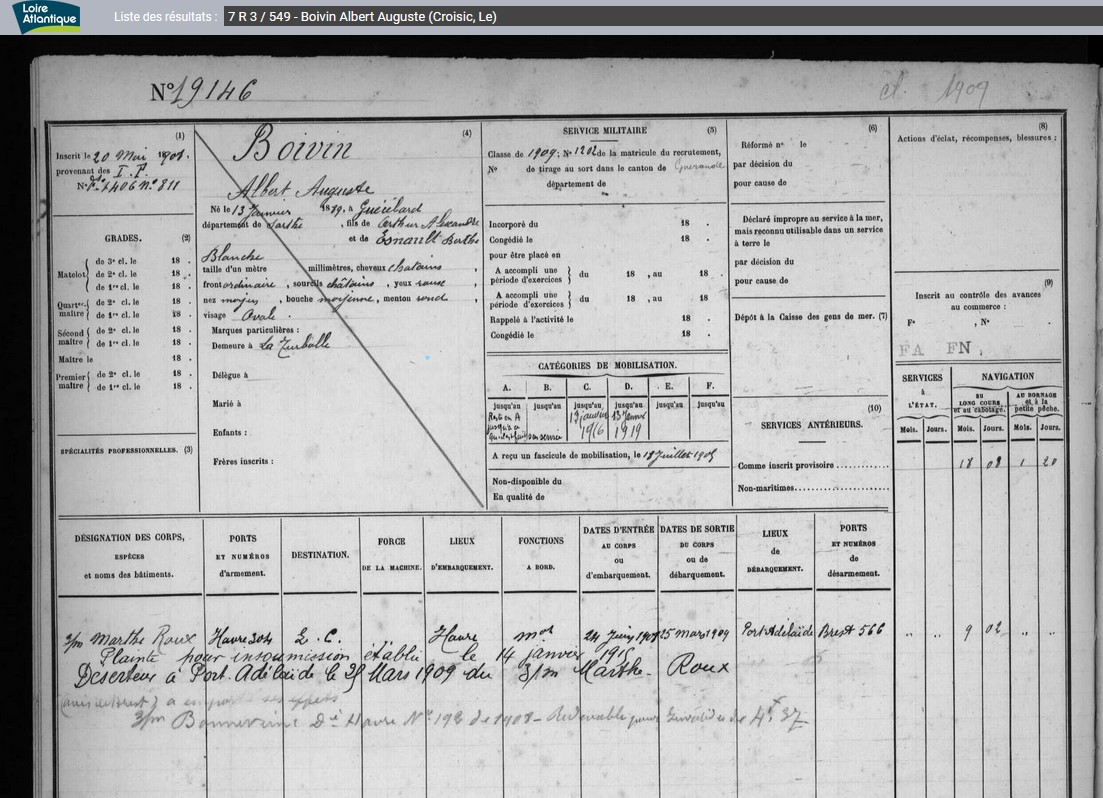 Loire
Atlantique
Liste des résultats :
7 R 3 / 549 - Boivin Albert Auguste (Croisic, Le)
N° 19146
cl. 1909
(1)
Inscrit le 20 Mai 1908.
provenant des I. P.
N° 811
GRADES. (2)
Matelot
de 3e cl. le 18 .
de 2e cl. le 18 .
de 1re cl. le 18 .
Quartr-maître
de 2e cl. le 18 .
de 1re cl. le 18 .
Second maître
de 2e cl. le 18 .
de 1re cl. le 18 .
Maître le 18 .
Premier maître
de 2e cl. le 18 .
de 1re cl. le 18 .
SPÉCIALITÉS PROFESSIONNELLES. (3)
(4)
Boivin
Albert Auguste
Né le 13 Janvier 1889, à Guécélard
département de Sarthe , fils de Arthur Alexandre
et de Esnault Berthe
Blanche
taille d'un mètre millimètres, cheveux chatains ,
front ordinaire , sourcils châtains , yeux ,
nez moyen , bouche moyenne, menton rond ,
visage Ovale .
Marques particulières :
Demeure à La Turballe
Délégue à
Marié à
Enfants :
Frères inscrits :
SERVICE MILITAIRE (5)
Classe de 1909; N° 1202 de la matricule du recrutement,
N° de tirage au sort dans le canton de Guérande
département de
Incorporé du 18 .
Congédié le 18 .
pour être placé en
A accompli une période d'exercices du 18 , au 18 .
A accompli une période d'exercices du 18 , au 18
Rappelé à l'activité le 18 .
Congédié le 18
CATÉGORIES DE MOBILISATION.
A. B. C. D. E. F.
jusqu'au jusqu'au jusqu'au jusqu'au jusqu'au jusqu'au
13 janvier 1916
13 Janvr 1919
A reçu un fascicule de mobilisation, le 18 Juillet
Non-disponible du
En qualité de
(6)
Réformé n° le
par décision du
pour cause de
Déclaré impropre au service à la mer,
mais reconnu utilisable dans un service
à terre le
par décision du
pour cause de
Dépôt à la Caisse des gens de mer. (7)
(10)
SERVICES ANTÉRIEURS.
Comme inscrit provisoire
Non-maritimes
(8)
Actions d'éclat, récompenses, blessures :
(9)
Inscrit au contrôle des avances
au commerce :
F° , N° .
FA FN.
SERVICES à L'ÉTAT.
NAVIGATION
AU LONG COURS et au cabotage.
AU BORNAGE et à la petite pêche.
Mois. Jours. Mois. Jours. Mois. Jours.
18 08 1 20
DÉSIGNATION DES CORPS, ESPÈCES et noms des bâtiments.
PORTS ET NUMÉROS d'armement.
DESTINATION.
FORCE DE LA MACHINE.
LIEUX D'EMBARQUEMENT.
FONCTIONS A BORD.
DATES D'ENTRÉE AU CORPS ou d'embarquement.
DATES DE SORTIE DU CORPS ou de débarquement.
LIEUX de DÉBARQUEMENT.
PORTS ET NUMÉROS de désarmement.
3/m Marthe Roux Havre 304 L. C. .. Havre mot 24 Juin 1908 25 Mars 1909 Port Adélaïde Brest 566 .. .. 9 02 .. ..
Plainte pour insoumission établie le 14 janvier 1915
Deserteur à Port Adélaïde le 25 Mars 1909 du 3/m Marthe Roux
ses effets
3/m Havre N° 198 de 1908 - Redevable 4f 37